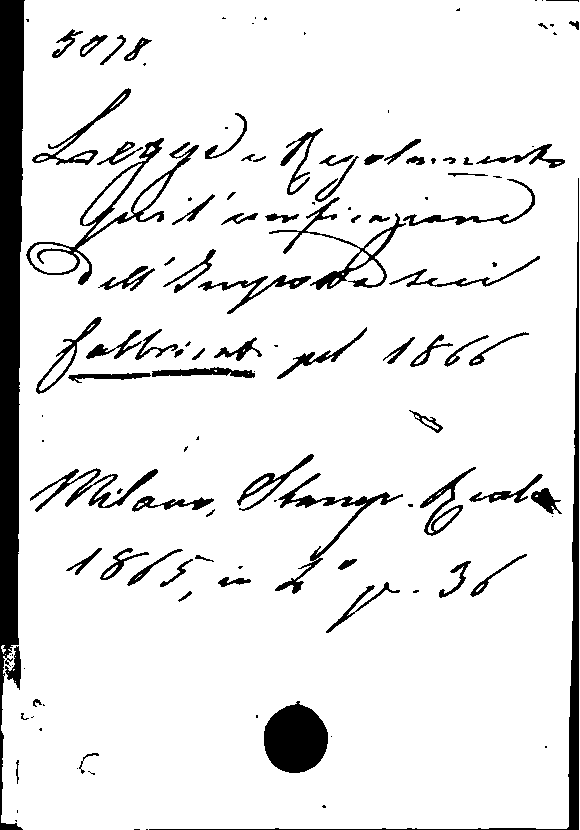 5078.
Leggi e Regolamento
per l'unificazione
dell'Imposta sui
fabbricati pel 1866
Milano, Stamp. Reale
1865, in 2° p. 36